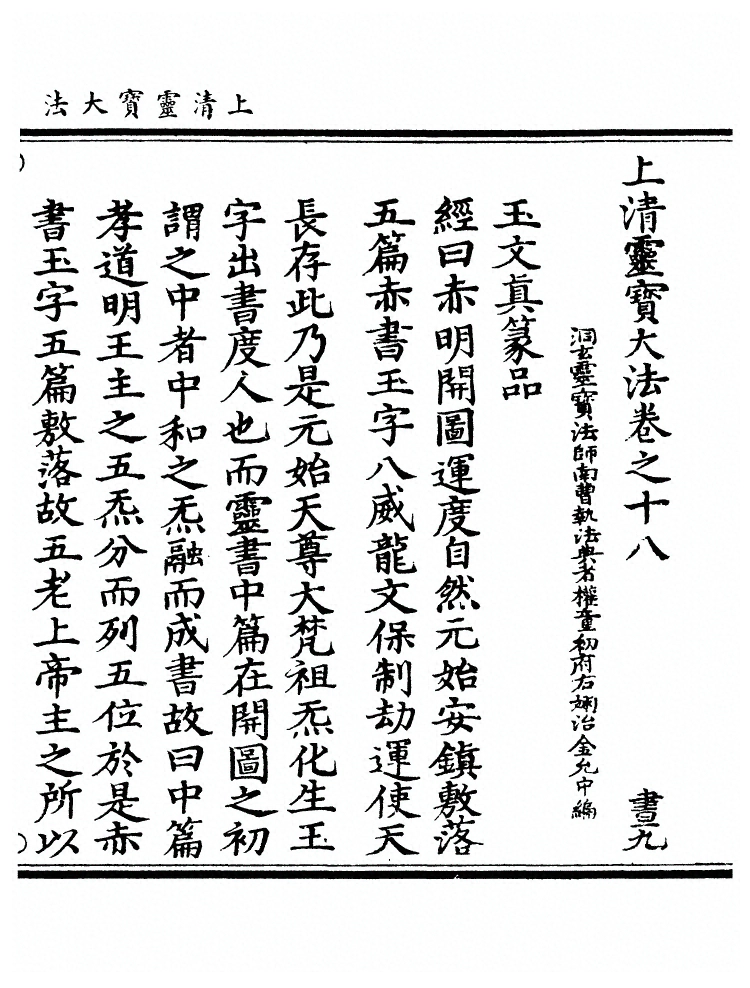 上清靈寶大法
上清靈寶大法卷之十八　晝九
洞玄靈寶法師南曹執法典者權童初府右𤫩治金允中編
玉文真篆品
經曰赤明開圖運度自然元始安鎮敷落
五篇赤書玉字八威龍文保制劫運使天
長存此乃是元始天尊大梵祖炁化生玉
字出書度人也而靈書中篇在開圖之初
謂之中者中和之炁融而成書故曰中篇
孝道明王主之五炁分而列五位於是赤
書玉字五篇敷落故五老上帝主之所以